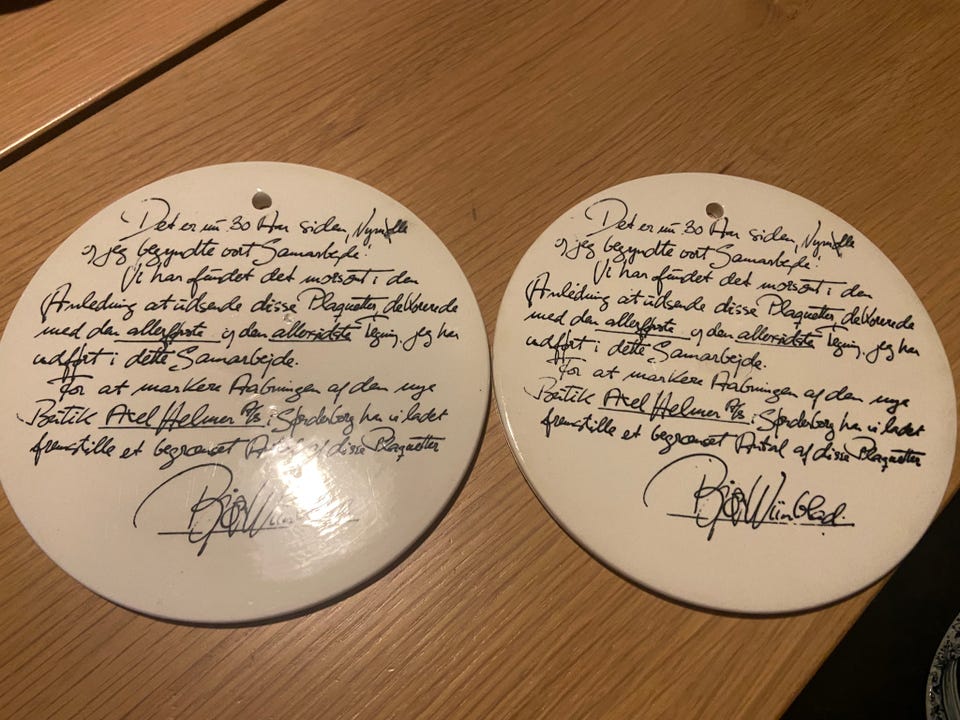 Det er nu 30 Aar siden, Nymølle
og jeg begyndte vort Samarbejde.
Vi har fundet det morsomt i den
Anledning at udsende disse Plaquetter, dekorerede
med den allerførste og den allersidste tegning, jeg har
udført i dette Samarbejde.
For at markere Aabningen af den nye
Butik Axel Helmer A/S i Sønderborg har vi ladet
fremstille et begrænset Antal af disse Plaquetter
Bjørn Wiinblad
Det er nu 30 Aar siden, Nymølle
og jeg begyndte vort Samarbejde.
Vi har fundet det morsomt i den
Anledning at udsende disse Plaquetter, dekorerede
med den allerførste og den allersidste tegning, jeg har
udført i dette Samarbejde.
For at markere Aabningen af den nye
Butik Axel Helmer A/S i Sønderborg har vi ladet
fremstille et begrænset Antal af disse Plaquetter
Bjørn Wiinblad